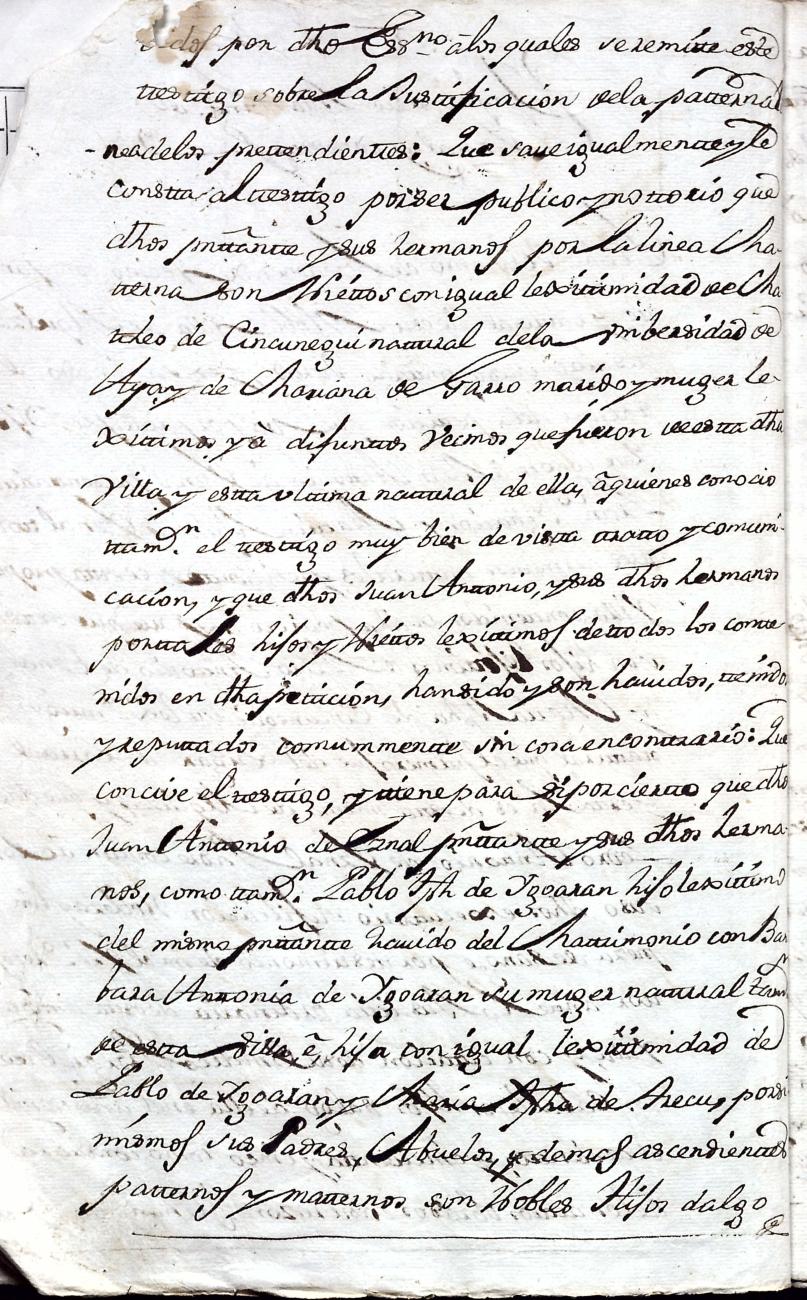 por dho Essno â los quales se remite este
testigo sobre la Justificacion dela patternal
- nea delos prettendienttes: Que save igualmentte y le
constta al testtigo por ser publico y nottorio que
dhos pnttantte y sus hermanos por la linea Ma-
tterna son Niettos con igual lexittimidad de Ma-
ttheo de Cincunegui natural dela Vnibersidad de
Aya, y de Mariana de Garro marido y muger le-
xittimos, ya difunttos Vecinos que fueron de estta dha
Villa y estta vltima natural de ella, â quienes conocio
ttamvn el testtigo muy bien de vistta tratto y comuni-
cacion, y que dhos Juan Antonio, y sus dhos hermanos
por ttales hijos y Niettos lexittimos de ttodos los conte-
nidos en dha petticion, han sido y son havidos, ttenidos,
y reputtados comummentte sin cosa en contrario: Que
concive el testtigo, y ttiene para si por ciertto que dho
Juan Antonio de pnttantte y sus dhos herma-
nos, como ttamvn Pablo Jph de Ygoaran hijo lexittimo
del mismo pnttantte havido del Mattrimonio con Bar
bara Anttonia de Ygoaran su muger natural tamn
de estta Villa, ê hija con igual lexittimidad de
Pablo de Ygoaran y Maria Jpha de Arecu, por si
mismos sus Padres, Abuelos, y demas ascendienttes
patternos y matternos son Nobles Hijos dalgo